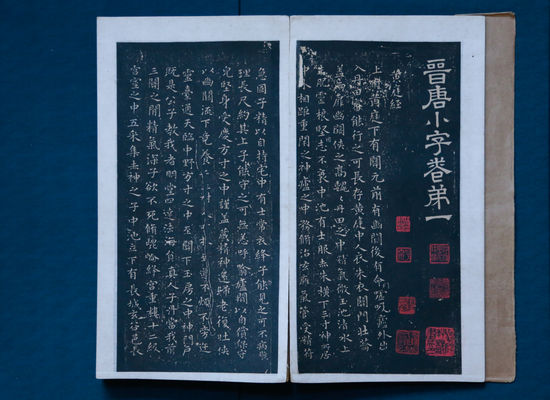 晉唐小字卷第一
黃庭經
上有黃庭下有關元前有幽闕後有命噓吸廬外出
入丹田審能行之可長存黃庭中人衣朱衣關門壯籥
蓋兩扉幽闕俠之高魏魏丹田之中精氣微玉池清水上
生肥靈根堅志不衰中池有士服赤朱橫下三寸神所居
中外相距重閉之神廬之中務脩治玄廱氣管受精符
急固子精以自持宅中有士常衣絳子能見之可不病橫
理長尺約其上子能守之可無恙呼噏廬間以自償保守
完堅身受慶方寸之中謹蓋藏精神還歸老復壯俠
以幽闕流下竟養至道不煩不旁迕
靈臺通天臨中野方寸之中至關下玉房之中神門戶
既是公子教我者明堂四達法海員真人子丹當我前
三關之間精氣深子欲不死脩崑崙絳宮重樓十二級
宮室之中五采集赤神之子中池立下有長城玄谷邑長